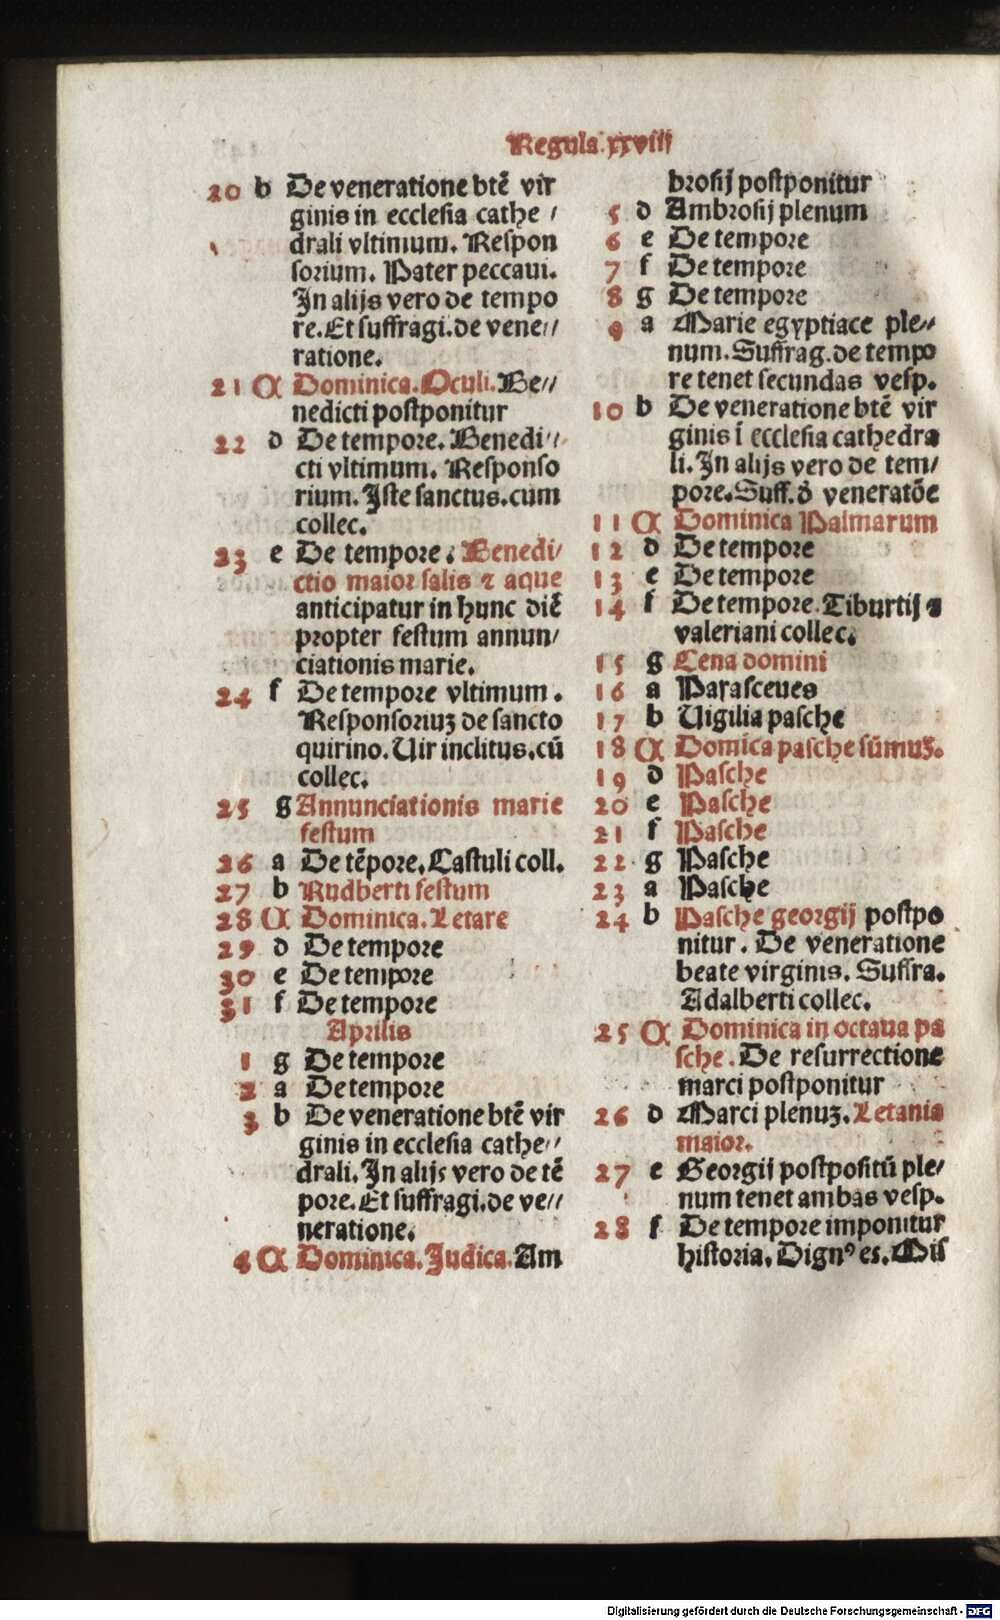 Regula.xxviij
20 b De veneratione btē vir
ginis in ecclesia cathe /
drali vltimum. Respon
sorium. Pater peccaui.
In alijs vero de tempo
re. Et suffragi. de vene//
ratione.
21 A Dominica. Oculi. Be//
nedicti postponitur
22 d De tempore. Benedi//
cti vltimum. Responso
rium. Iste sanctus. cum
collec.
23 e De tempore. Benedi/
ctio maior salis ⁊ aque
anticipatur in hunc diē
propter festum annun/
ciationis marie.
24 f De tempore vltimum.
Responsoriuꝫ de sancto
quirino. Uir inclitus. cū
collec.
25 g Annunciationis marie
festum
26 a De tēpore. Castuli coll.
27 b Rudberti festum
28 A Dominica. Letare
29 d De tempore
30 e De tempore
31 f De tempore
Aprilis
1 g De tempore
2 a De tempore
3 b De veneratione btē vir
ginis in ecclesia cathe//
drali. In alijs vero de tē
pore. Et suffragi. de ve//
neratione.
4 A Dominica. Judica. Am
brosij postponitur
5 d Ambrosij plenum
6 e De tempore
7 f De tempore
8 g De tempore
9 a Marie egyptiace ple//
num. Suffrag. de tempo
re tenet secundas vesp.
10 b De veneratione btē vir
ginis ī ecclesia cathedra
li. In alijs vero de tem/
pore. Suff. ð veneratōe
11 A Dominica Palmarum
12 d De tempore
13 e De tempore
14 f De tempore. Tiburtij ⁊
valeriani collec.
15 g Cena domini
16 a Parasceues
17 b Uigilia pasche
18 A Domica pasche sūmuꝫ.
19 d Pasche
20 e Pasche
21 f Pasche
22 g Pasche
23 a Pasche
24 b Pasche georgij postpo
nitur. De veneratione
beate virginis. Suffra.
Adalberti collec.
25 A Dominica in octaua pa
sche. De resurrectione
marci postponitur
26 d Marci plenuꝫ. Letania
maior.
27 e Georgij postpositū ple/
num tenet ambas vesp.
28 f De tempore imponitur
historia. Dignꝰ es. Mis
Digitalisierung gefördert durch die Deutsche Forschungsgemeinschaft - DFG